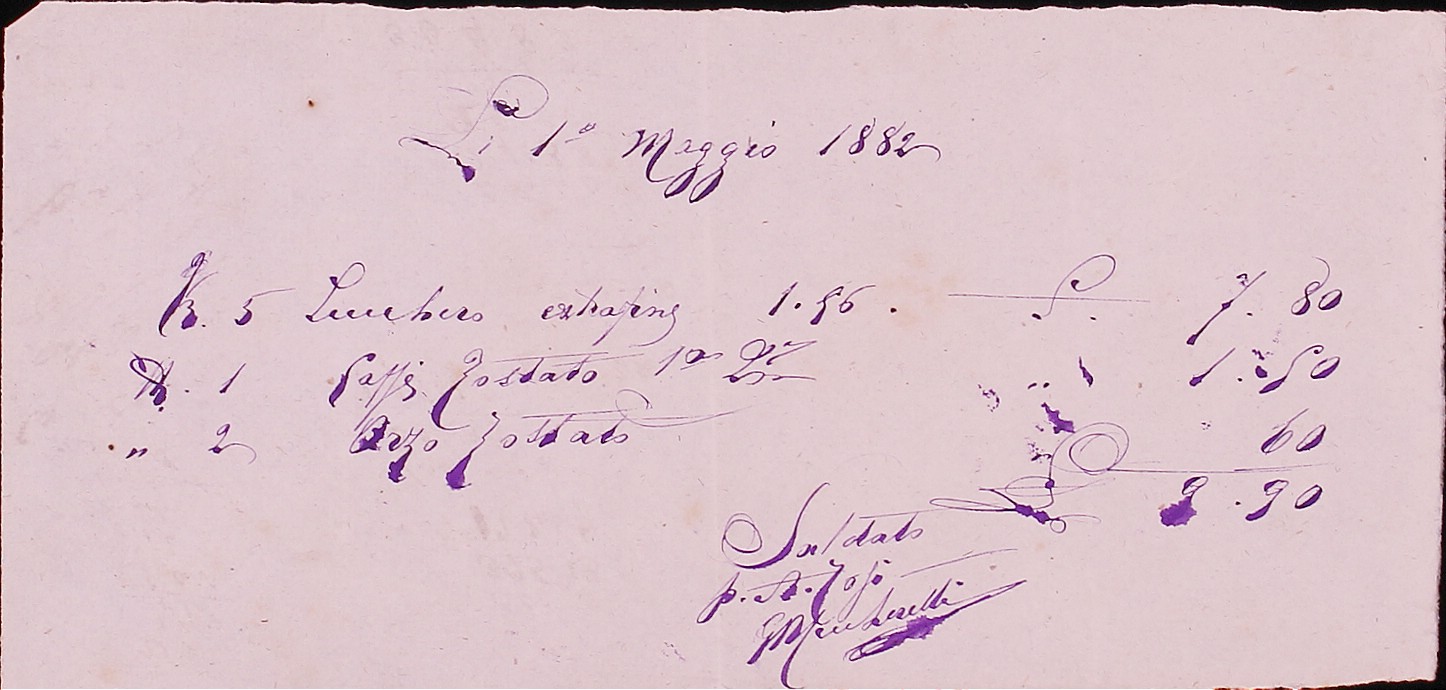 Li 1º Maggio 1882
K. 5 Zucchero extrafine 1.56. L. 7.80
K. 1 Caffè Tostato 1ª " 1.50
" 2 Orzo Tostato 60
L 9.90
Saldato
p. A.